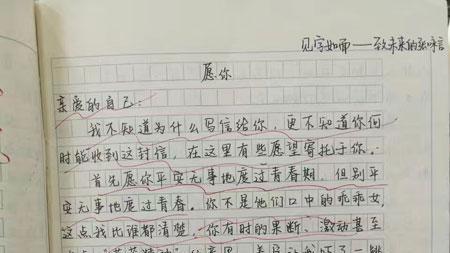 见字如面——致未来的张味信
愿你
亲爱的自己:
我不知道为什么写信给你,更不知道你何
时能收到这封信,在这里有些愿望寄托于你。
首先愿你平安无事地度过青春期,但别平
安无事地度过青春。你不是他们口中的乖乖女,
这点我比谁都清楚。你有时的果断、激动甚至